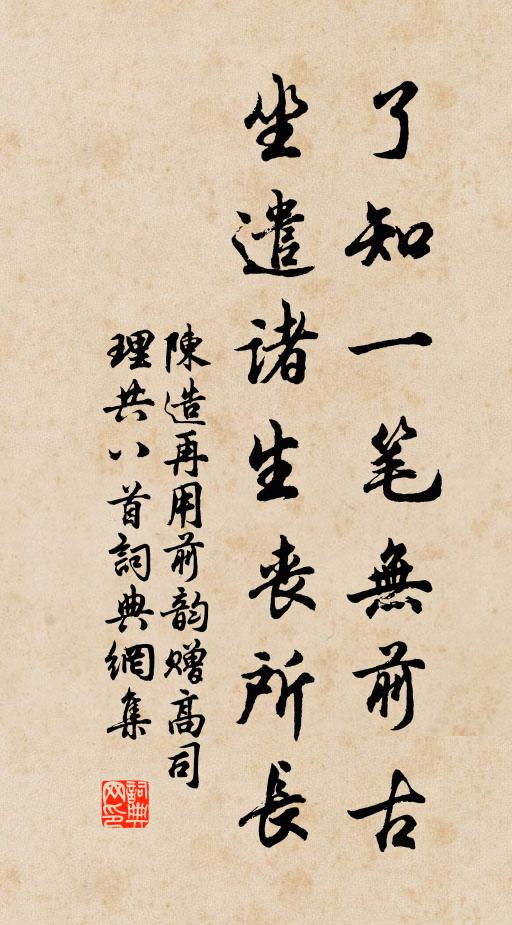 了知一笔無前古
坐遣諸生喪所長
陳造再用前韵赠高司
理共八首詞典網集
詞典网印